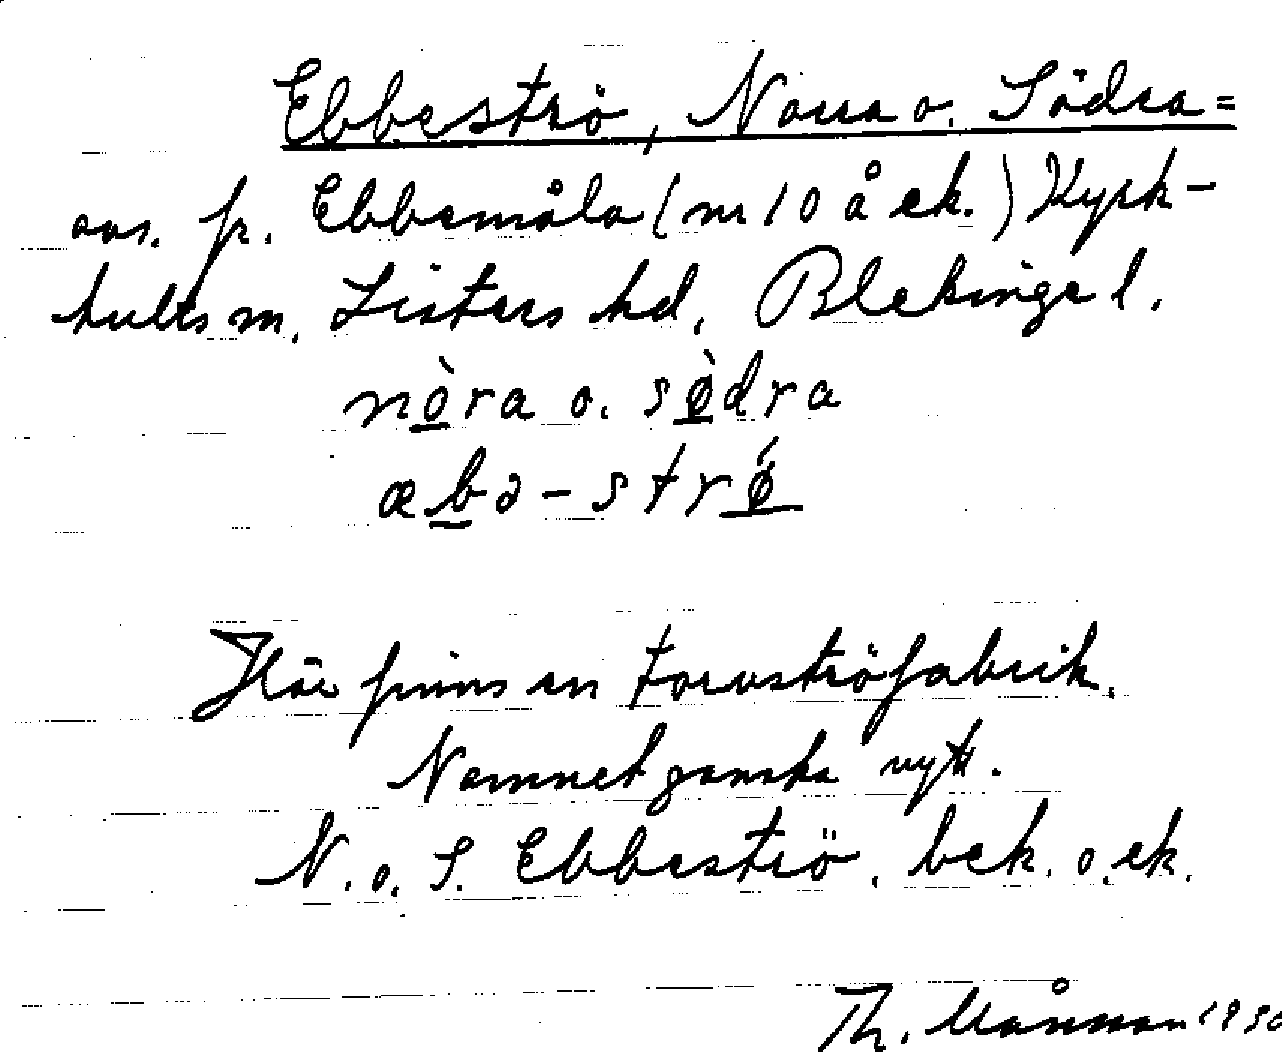 Ebbeströ, Norra o. Södra =
avs. fr. Ebbemåla (nr 10 å ek.) Kyrk-
hults sn. Listers hd, Blekinge l.
nòra o. sø̀dra
æbə-strǿ
Här finns en torvströfabrik.
Namnet ganska nytt.
N. o. S. Ebbeströ. bek. o. ek.
Th. Månsson